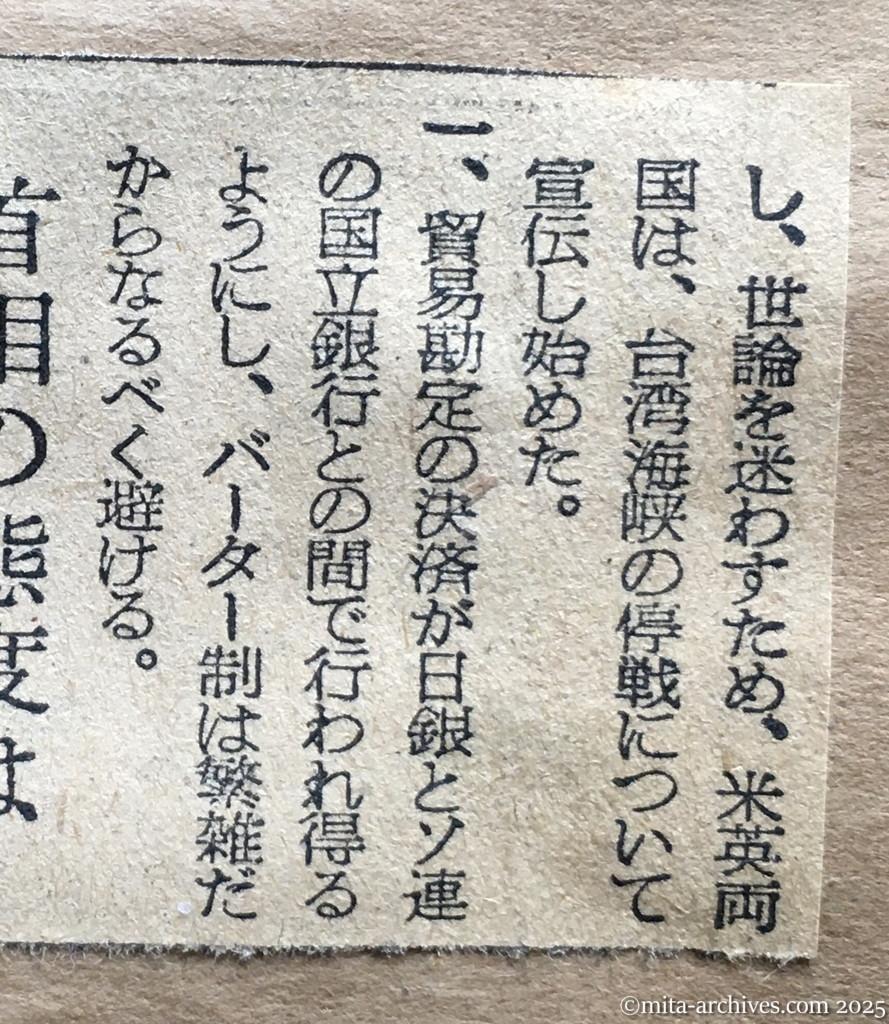 し、世論を迷わすため、米英両
国は、台湾海峡の停戦について
宣伝し始めた。
一、貿易勘定の決済が日銀とソ連
の国立銀行との間で行われ得る
ようにし、バーター制は繁雑だ
からなるべく避ける。
首相の態度は
©mita-archives.com 2025